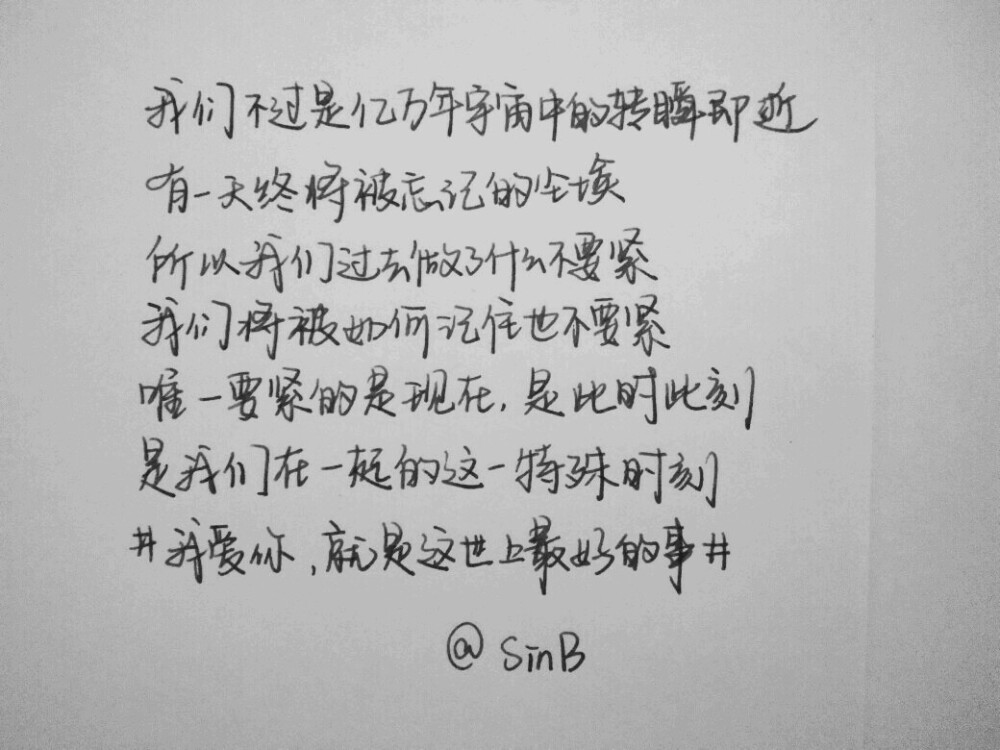 我们不过是亿万年宇宙中的转瞬即逝
有一天终将被忘记的尘埃
所以我们过去做了什么不要紧
我们将被如何记住也不要紧
唯一要紧的是现在，是此时此刻
是我们在一起的这一特殊时刻
#我爱你，就是这世上最好的事#
@SinB